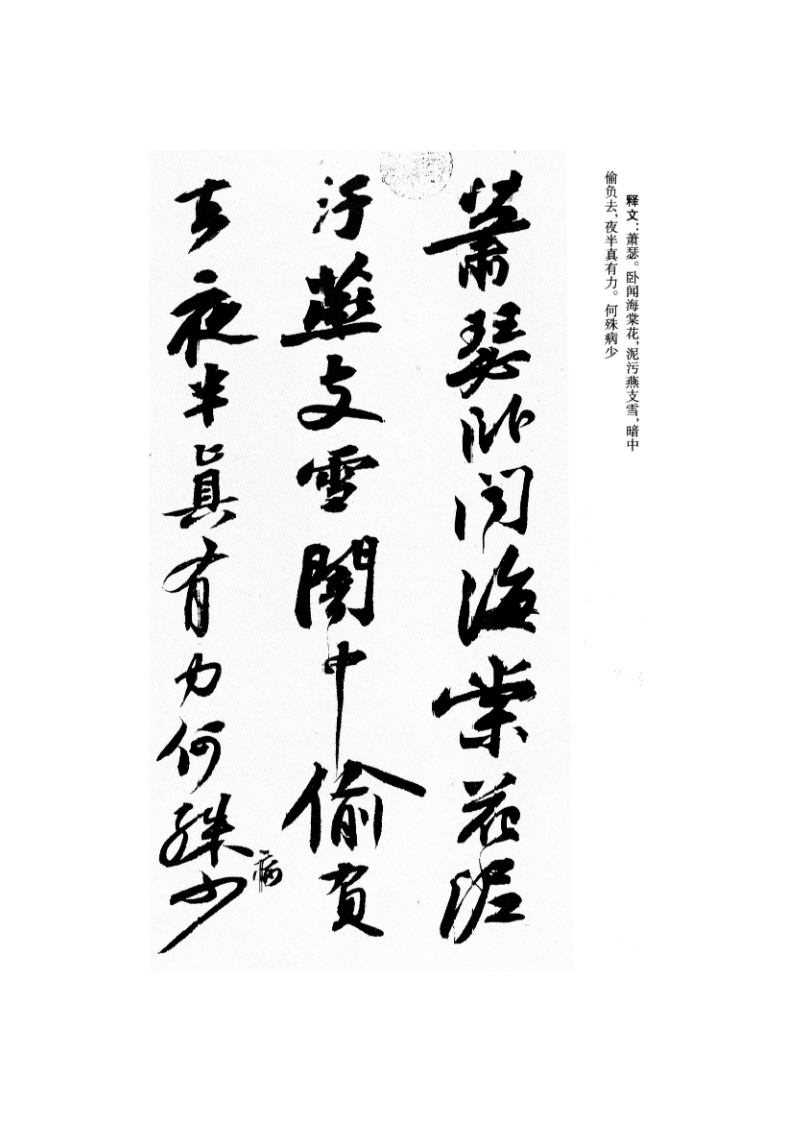 释文：萧瑟。卧闻海棠花，泥污燕支雪，暗中
偷负去，夜半真有力。何殊病少
萧瑟卧闻海棠花泥
汙燕支雪闇中偷負
去夜半真有力何殊少
病